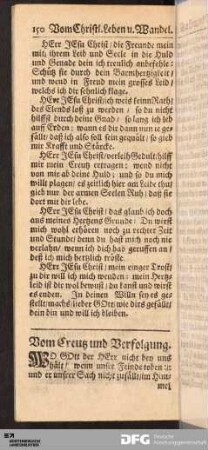 150 Vom Christl. Leben u. Wandel.
HErr JEsu Christ / die Freunde mein
mit ihrem Leib und Seele in die Huld
und Genade dein ich treulich anbefehle:
Schütz sie durch dein Barmhertzigkeit /
und wend in Freud mein grosses Leid /
welchs ich dir kindlich klage.
HErr JEsu Christ ich weis keinn Rath /
des Elends loß zu werden / so du nicht
hilffst durch deine Gnad / so lang ich leb
auf Erden: wann es dir dann nun ge-
fällt / daß ich also soll seyn gequält / so gib
mir Krafft und Stärcke.
HErr JEsu Christ / verleih Gedult / hilff
mir mein Creutz ertragen: wend nicht
von mir ab deine Huld; und so du mich
willt plagen / es zeitlich hier am Leibe thu /
gieb nur der armen Seelen Ruh / daß sie
dort mit dir lebe.
HErr JEsu Christ / das glaub ich doch
aus meines Hertzens Grunde: Du wirst
mich wohl erhören noch zu rechter Zeit
und Stunde; denn du hast mich noch nie
verlahn / wenn ich dich hab geruffen an /
deß ich mich hertzlich tröste.
HErr JEsu Christ / mein einger Trost /
zu dir will ich mich wenden; mein Hertz-
leid ist dir wol bewust / du kanst und wirst
es enden. In deinen Willn sey es ge-
stellt / machs lieber GOtt wie dirs gefällt /
dein bin und will ich bleiben.
Vom Creutz und Verfolgung.
WO GOtt der HErr nicht bey uns
hält / wenn unser Feinde toben
und er unsrer Sach nicht zufällt / im Him-
mel
DFG Deutsche
Forschungsgemeinschaft